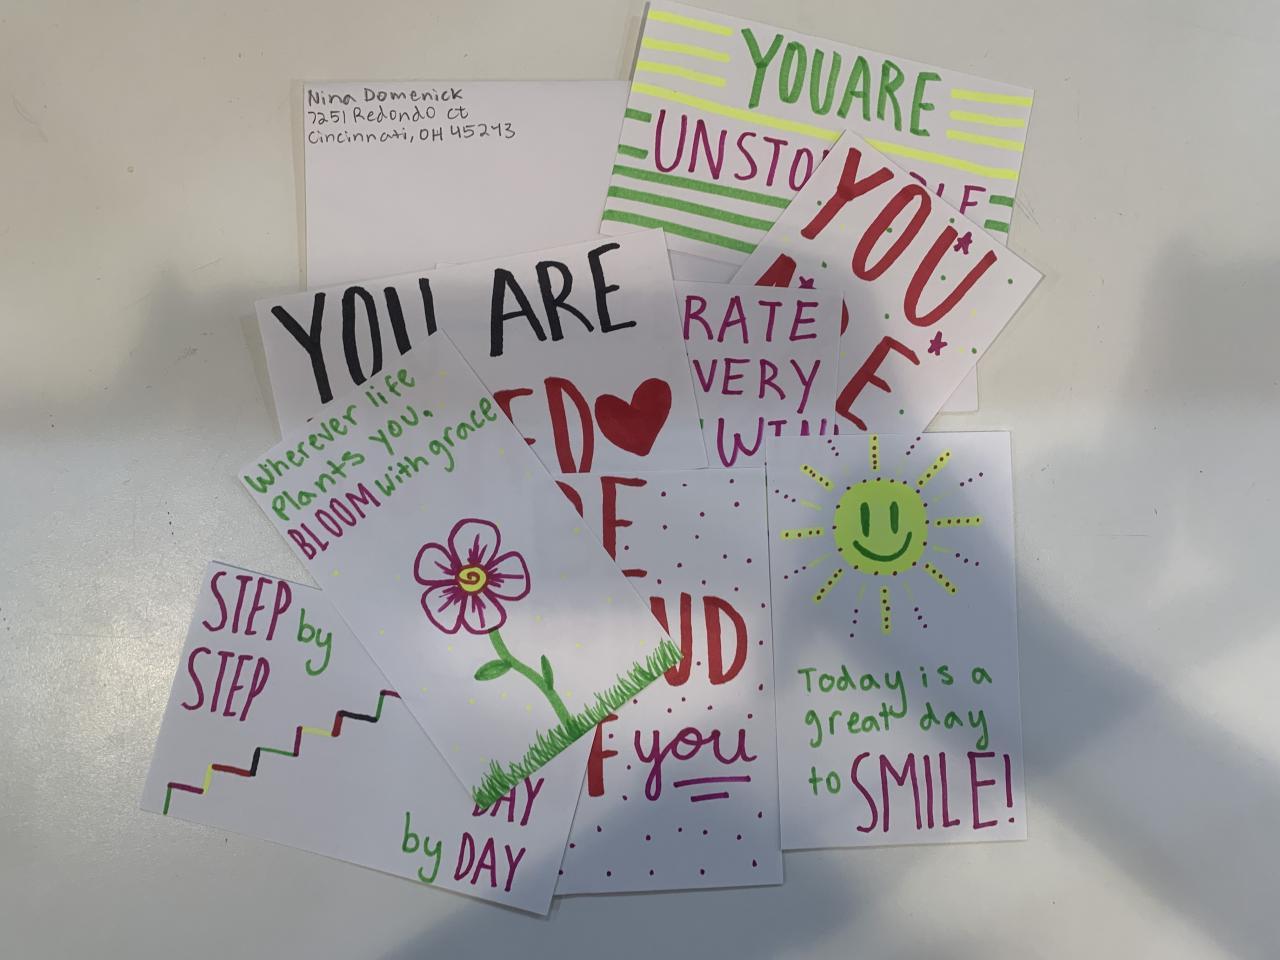 Nina Domenick
7251 Redondo ct
Cincinnati, OH 45243
YOU ARE
YOU
ARE
RATE
VERY
WIN
Wherever life
plants you.
BLOOM with grace
STEP by
STEP
DAY
by DAY
you
Today is a
great day
to SMILE!